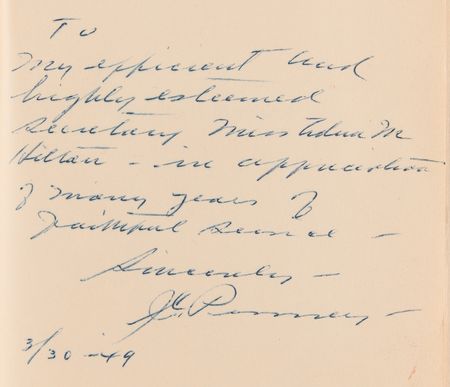 To
My efficient and
highly esteemed
secretary Miss Edna M
Hilton - in appreciation
of many years of
faithful service -
Sincerely -
J.C. Penney -
3/30-49